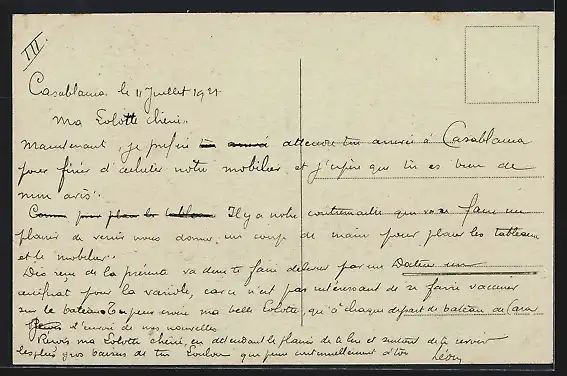 III
Casablanca le 11 Juillet 1921
Ma Lolotte chérie..
Maintenant, je préfère attendre ton arrivée à Casablanca
pour finir d'acheter notre mobilier et j'espère que tu es bien de
mon avis..
Il y a notre contremaître qui va se faire un
plaisir de venir nous donner un coup de main pour placer les tableaux
et le mobilier..
Dès reçu de la présente va donc te faire délivrer par un Docteur un
certificat pour la variole, car ce n'est pas intéressant de se faire vacciner
sur le bateau. Tu peux croire ma belle Lolotte, qu'à chaque départ de bateau de Casa
d'envoi de nos nouvelles
Reçois ma Lolotte chérie, en attendant le plaisir de te lire et surtout de te revoir
les plus gros baisers de ton Loulou qui pense continuellement à toi Léon